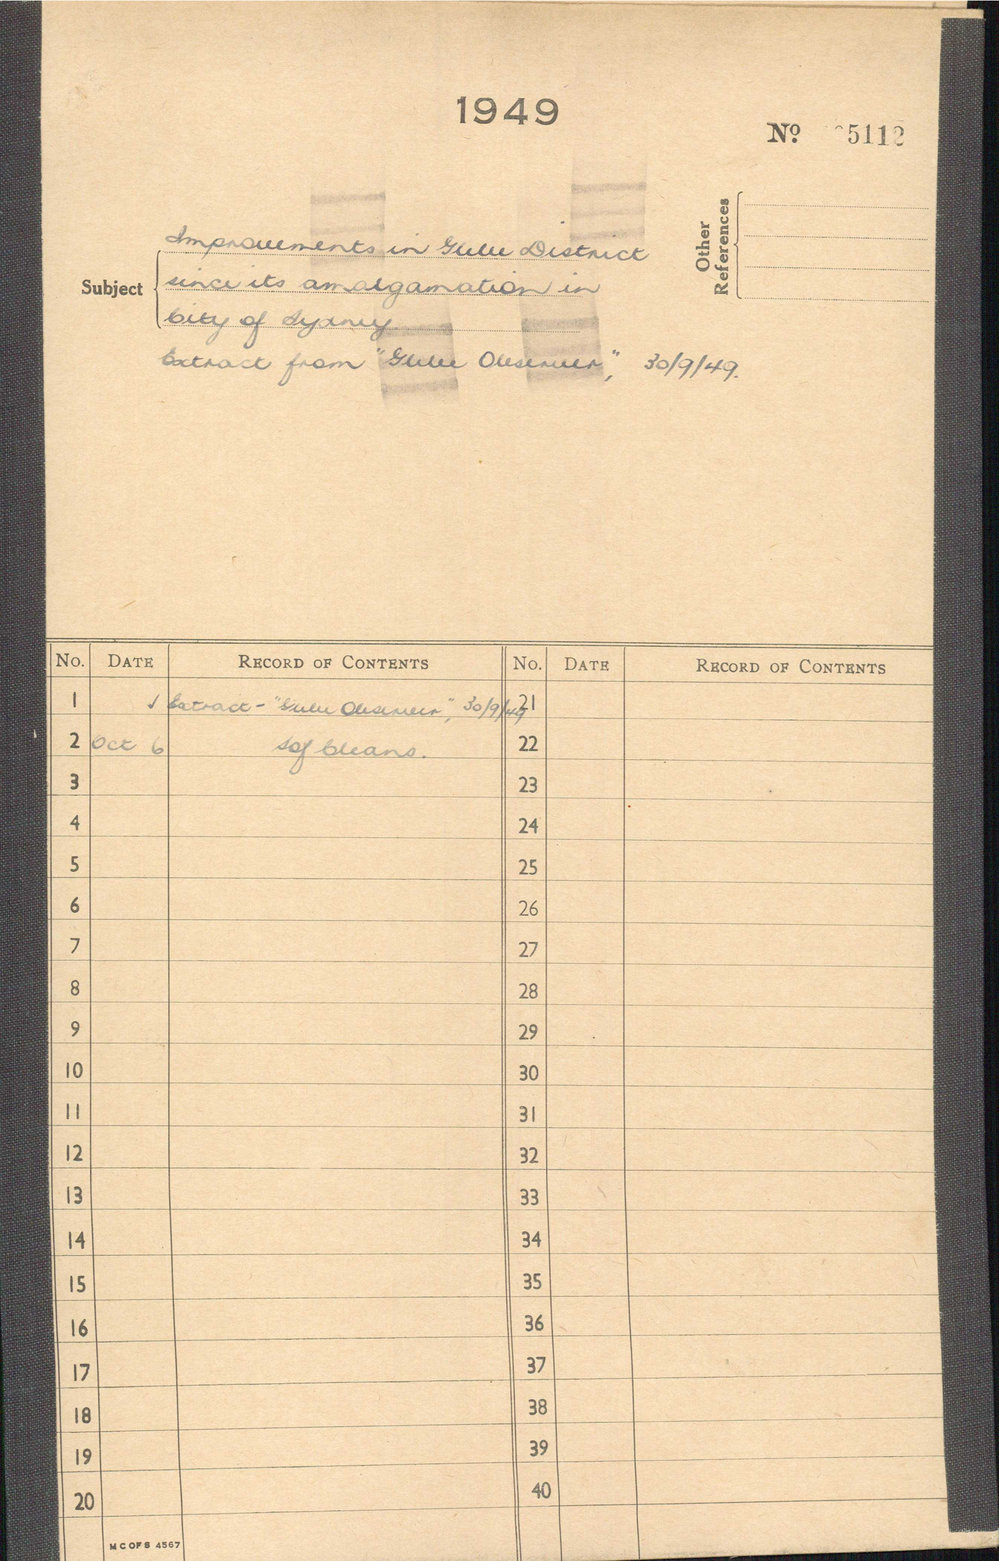 1949
No 5112
Other References
Subject
Improvements in Glebe District
since its amalgamation in
City of Sydney.
Extract from "Glebe Observer", 30/9/49.
No. DATE RECORD OF CONTENTS No. DATE RECORD OF CONTENTS
1 1 Extract - "Glebe Observer", 30/9/49 21
2 Oct 6 22
3 23
4 24
5 25
6 26
7 27
8 28
9 29
10 30
11 31
12 32
13 33
14 34
15 35
16 36
17 37
18 38
19 39
20 40
M C OF S 4567